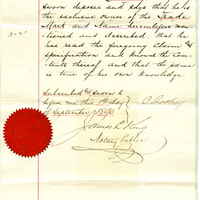 Sworn deposes and says that he is
the exclusive owner of the Trade
Mark and Name heretofore men-
tioned and described, that he
has read the foregoing Claim &
specification and knows the Con-
tents thereof and that the same
is true of his own Knowledge.
Subscribed & Sworn to
before me this 19 day
of September 1890
James L. King
Notary Public